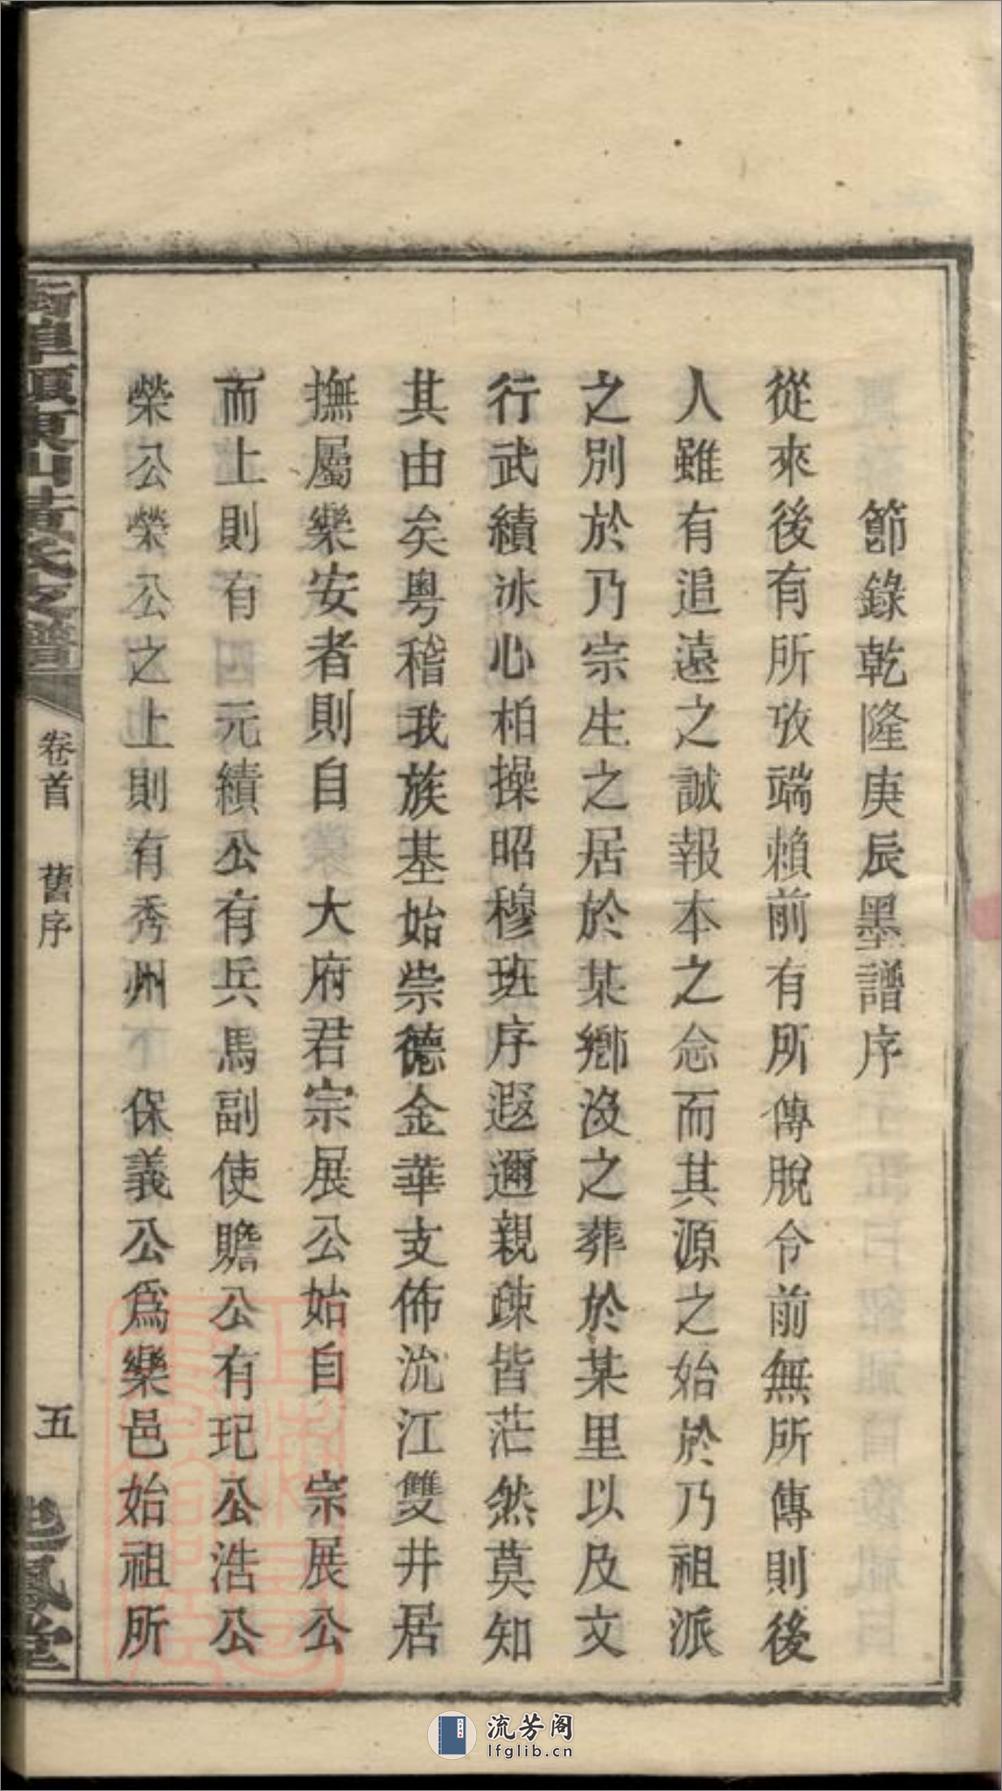 節錄乾隆庚辰墨譜序
從來後有所攷端賴前有所傳脫令前無所傳則後
人雖有追遠之誠報本之念而其源之始於乃祖派
之別於乃宗生之居於某鄉沒之葬於某里以及文
行武績冰心柏操昭穆班序遐邇親疎皆茫然莫知
其由矣粵稽我族基始崇德金華支佈沇江雙井居
撫屬樂安者則自 大府君宗展公始自 宗展公
而上則有元績公有兵馬副使贍公有玘公浩公
榮公榮公之上則有秀州 保義公爲樂邑始祖所
東山黃氏支譜
卷首 舊序
五
鳳堂
流芳阁
lfglib.cn